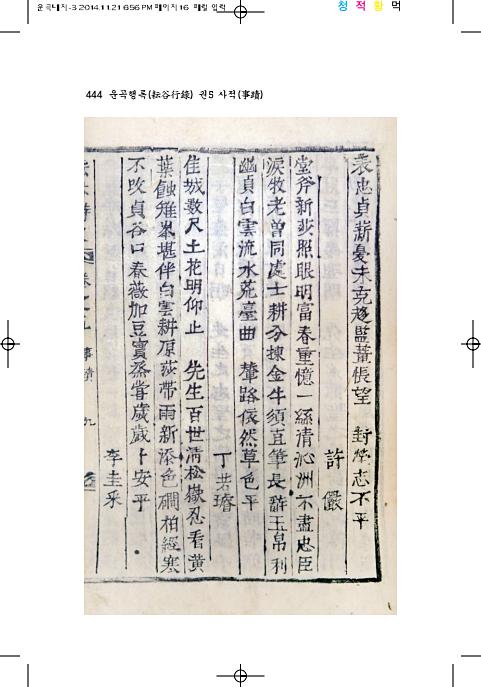 운곡내지-3 2014.11.21 6:56 PM 페이지16 매킬 입력
청 적 황 먹
444 운곡행록(耘谷行錄) 권5 사적(事蹟)
裘忠貞薪憂未克趍監薑悵望 封㷼志不平
許 儼
堂斧新莎照眼明富春重憶一絲清沁洲不盡忠臣
淚牧老曽同處士耕分揀金牛須直筆長辭玉帛利
幽貞白雲流水荒臺曲 輦路依然草色平
丁若璿
佳城数尺土花明仰止 先生百世清松檟忍看黄
葉蝕雉裘堪伴白雲耕原莎帶雨新添色磵柏經寒
不攺貞谷口春薇加豆實烝甞歲歲卜安平
李圭采
卷之五 事蹟 九